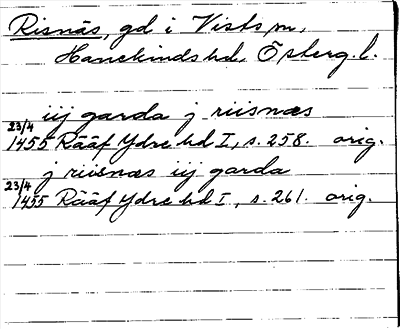 Risnäs, gd i Vists sn,
Hanekinds hd, Österg. l.
iij garda j riisnæs
23/4 1455 Rääf Ydre hd I, s. 258. orig.
j riisnæs iij garda
23/4 1455 Rääf Ydre hd I, s. 261. orig.